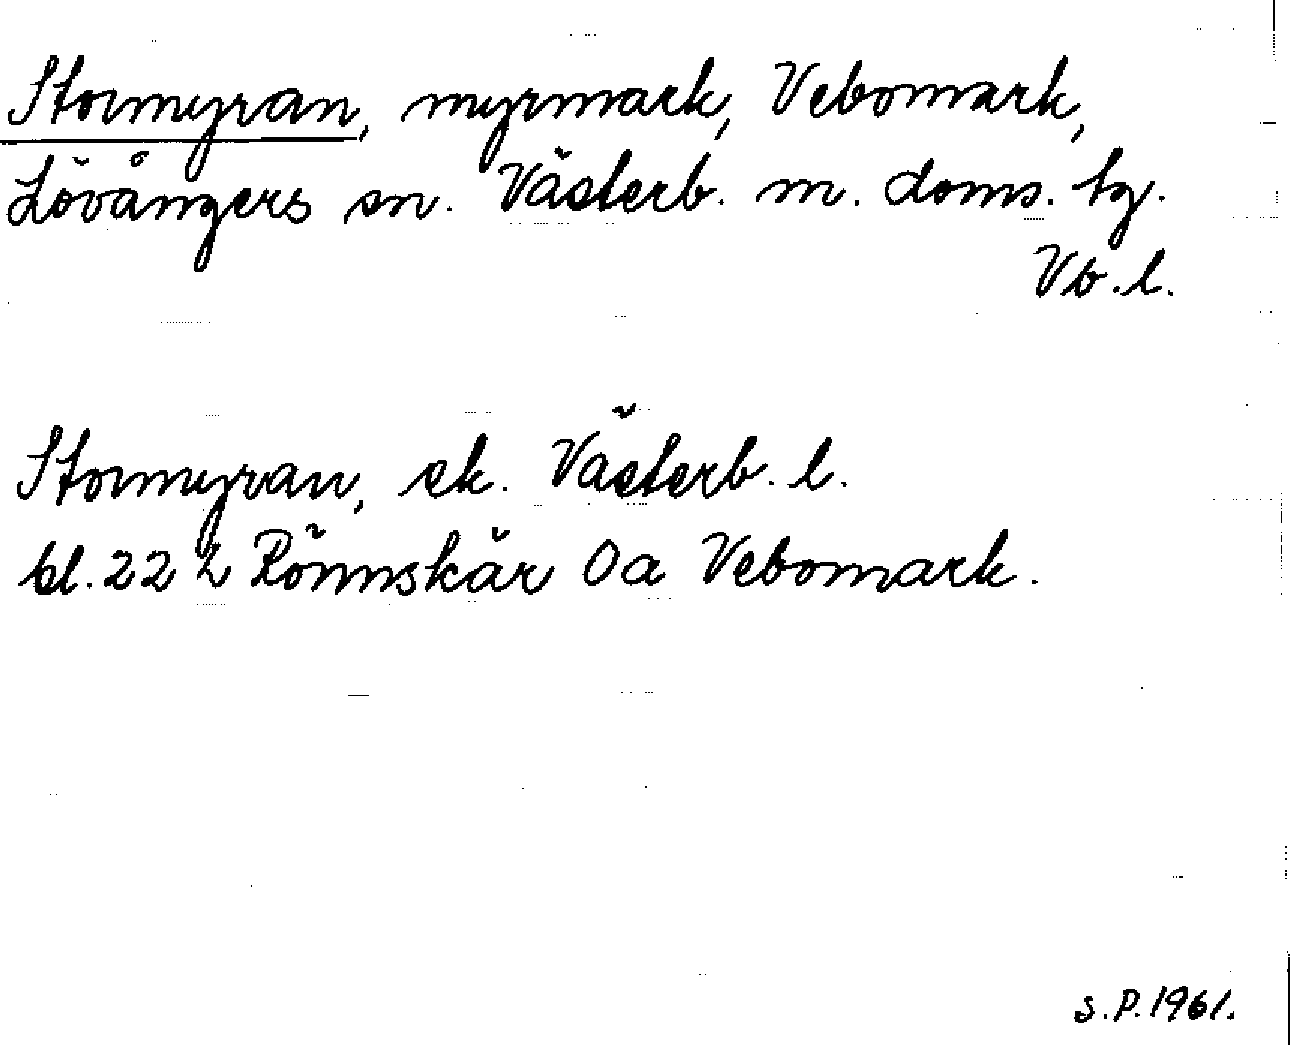 Stormyran, myrmark, Vebomark,
Lövångers sn. Västerb. m. doms. tg.
Vb. l.
Stormyran, ek. Västerb. l.
bl. 22 L Rönnskär 0a Vebomark.
S.P. 1961.